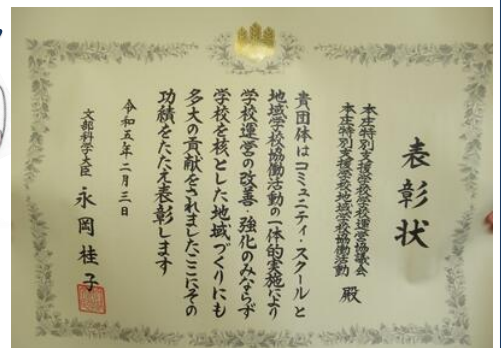 表彰状
本庄特別支援学校学校運営協議会
本庄特別支援学校地域学校協働活動
殿
貴団体はコミュニティ・スクールと
地域学校協働活動の一体的実施により
学校運営の改善・強化のみならず
学校を核とした地域づくりにも
多大の貢献をされましたここにその
功績をたたえ表彰します
令和五年二月三日
文部科学大臣 永岡桂子